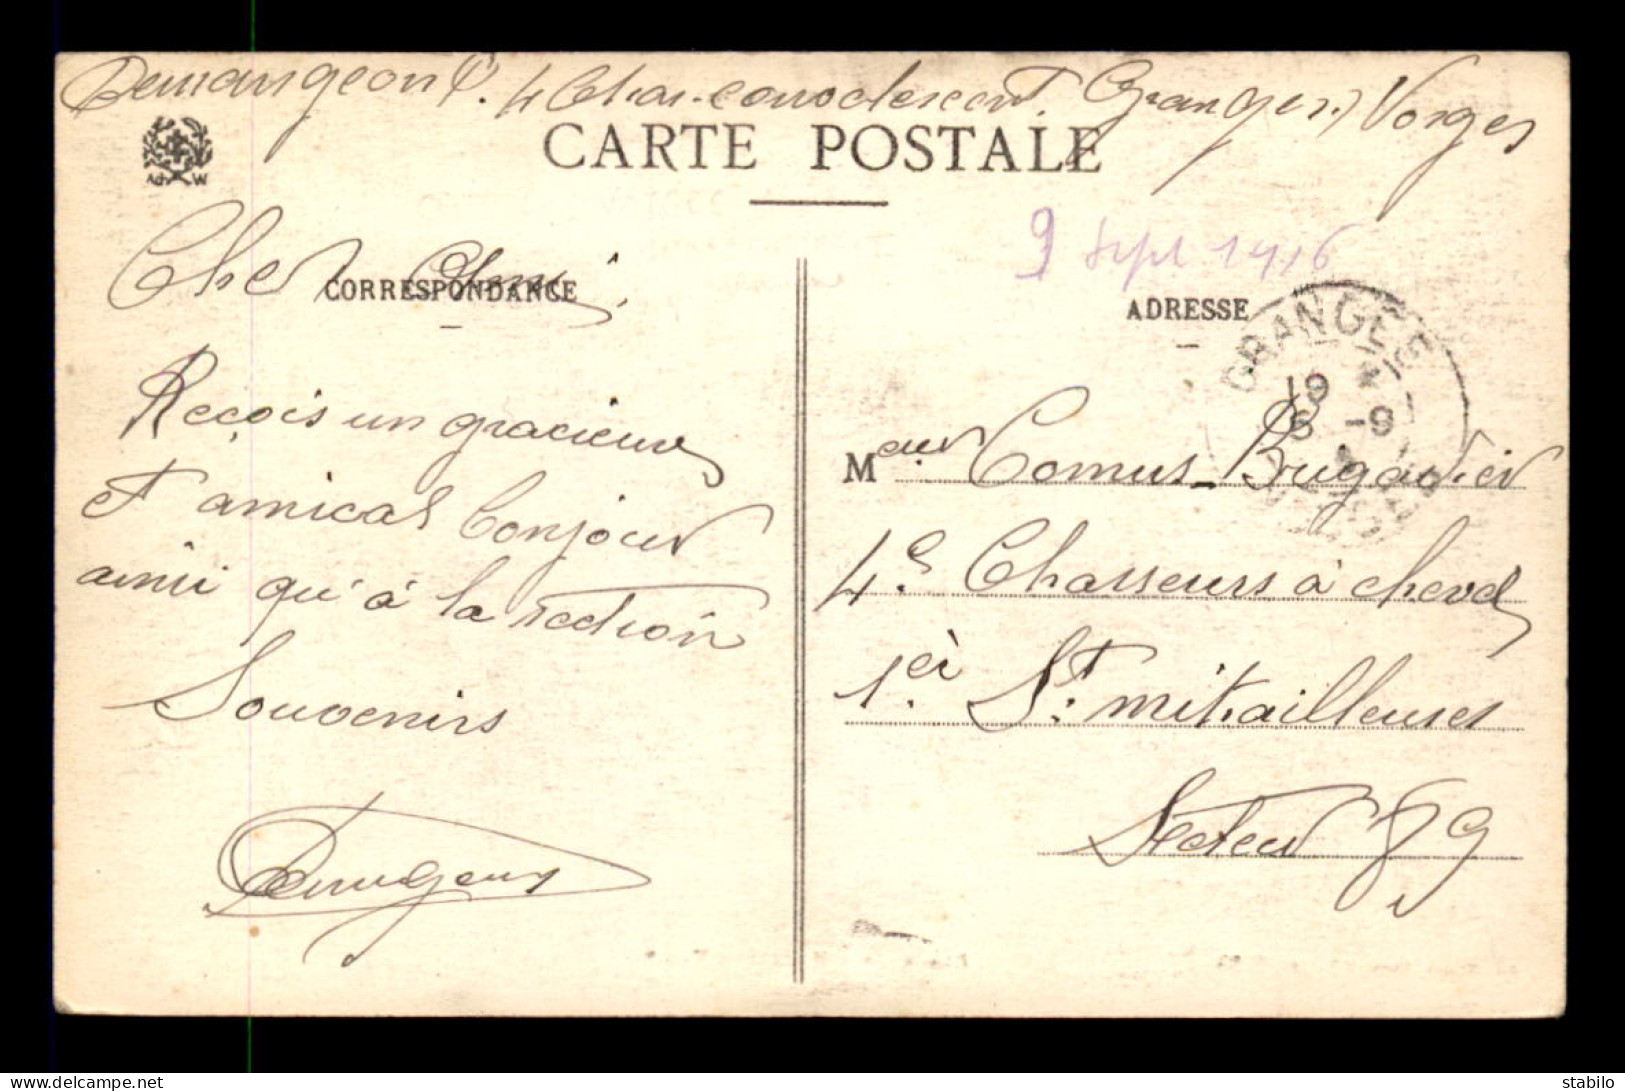 Demangeon P. 4 Chas. convalescent. Granges, Vosges
CARTE POSTALE
9 Sept 1916
Cher Ami,
CORRESPONDANCE
ADRESSE
GRANGES
19
6 -9
VOSGES
Reçois un gracieux
et amical bonjour
ainsi qu'à la section
Souvenirs
Demangeon
Meur Comus Brigadier
4e Chasseurs à cheval
1er St. mitrailleuses
Secteur 89
delcampe.net
stabilo